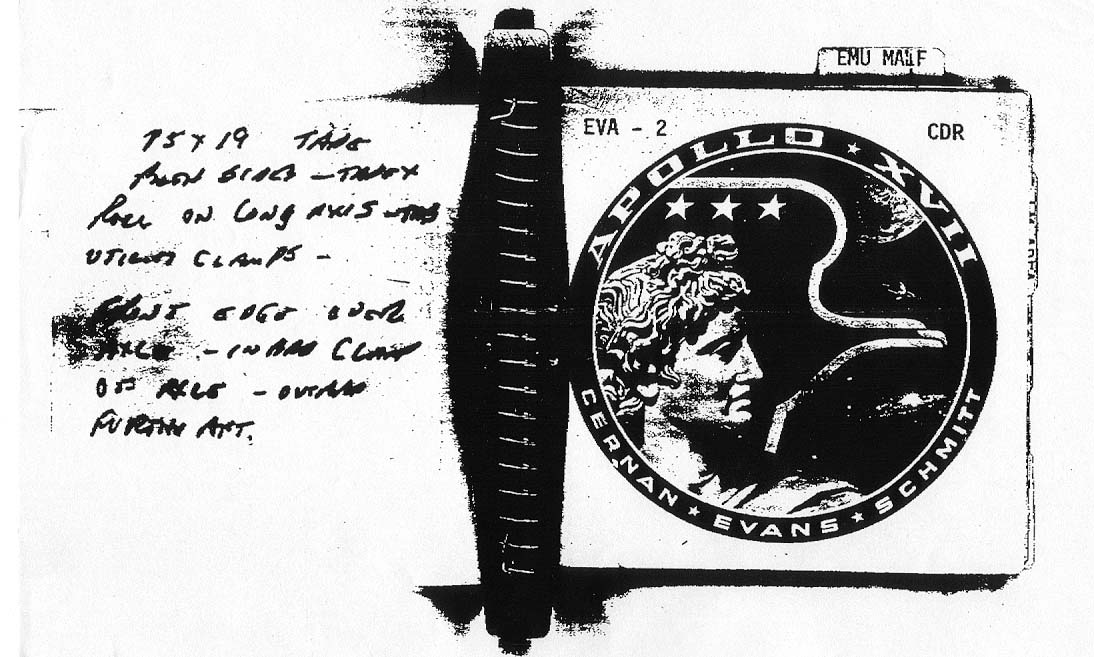 19 TAPE
SIDES -
ROLL ON LONG AXIS -
UTILITY CLAMPS -
FRONT EDGE OVER
AXLE - INBRD CLAMP
AXLE - OUTBRD
FURTHER AFT.
EMU MALF
EVA - 2
CDR
APOLLO ★ XVII
CERNAN ★ EVANS ★ SCHMITT